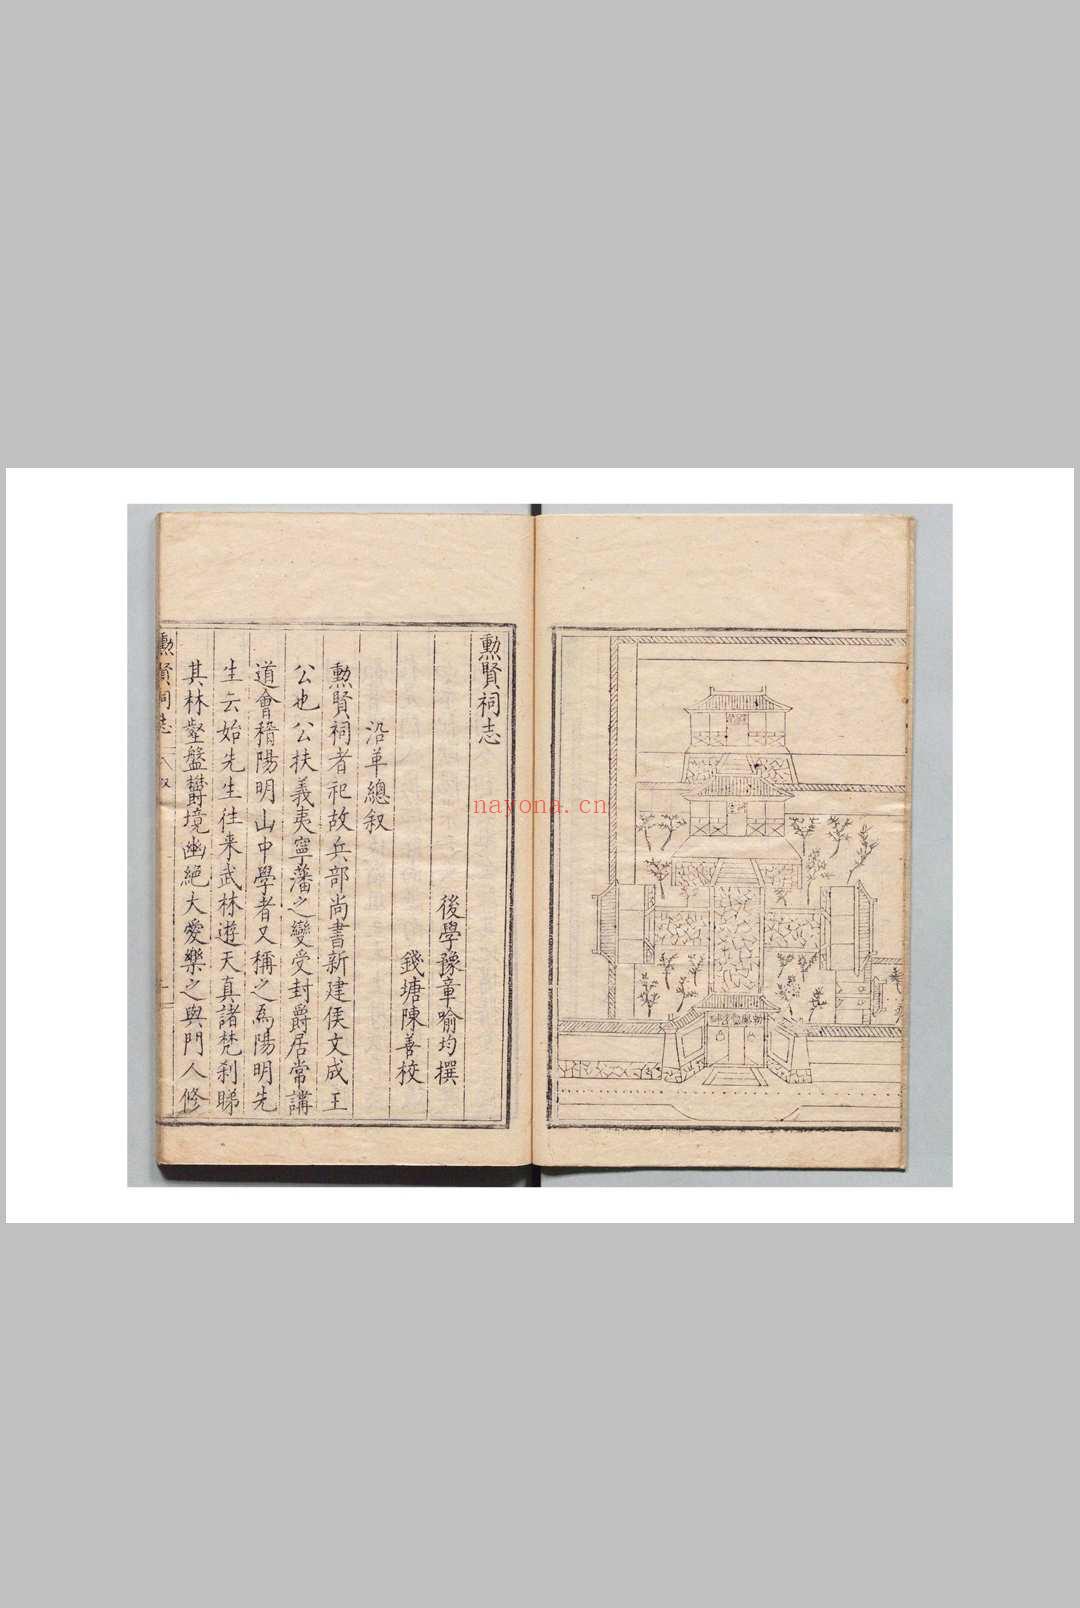 勲賢祠志
後學豫章喻均撰
錢塘陳善校
沿革總叙
勲賢祠者祀故兵部尚書新建侯文成王
公也公扶義夷寧藩之變受封爵居常講
道會稽陽明山中學者又稱之爲陽明先
生云始先生往来武林遊天真諸梵刹睇
其林壑盤欝境幽絶大愛樂之與門人修
勲賢祠志
nayona.cn